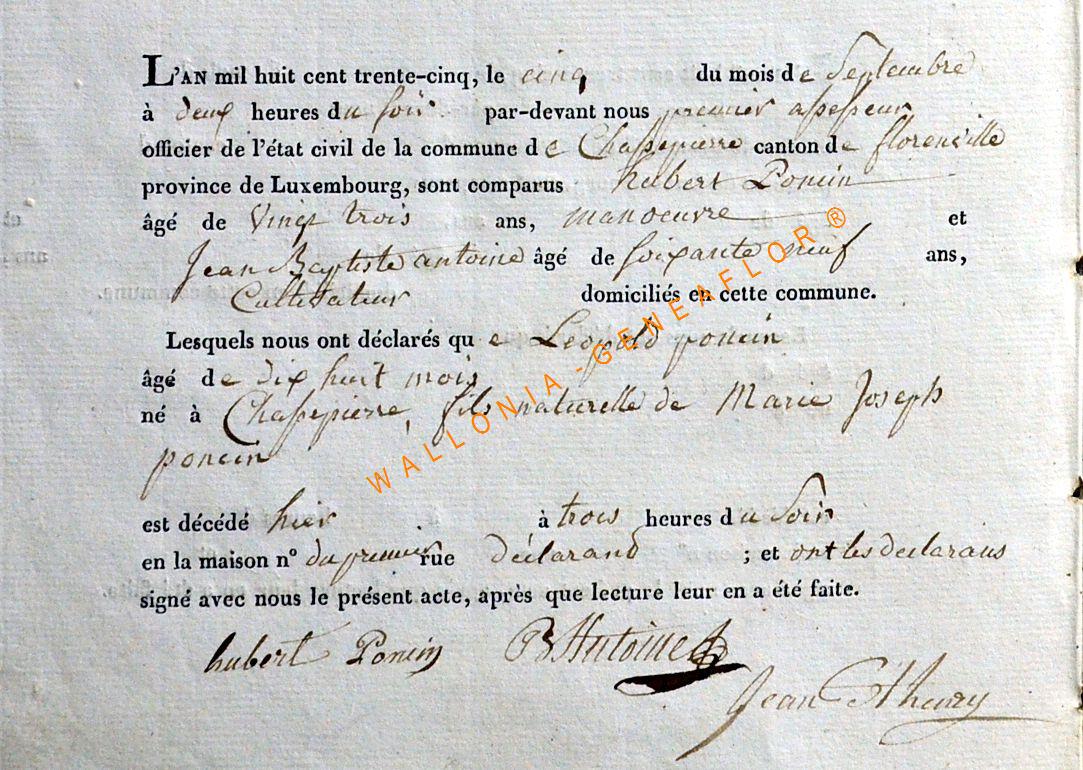 L'AN mil huit cent trente-cinq, le cinq du mois de Septembre
à deux heures du soir par-devant nous premier assesseur
officier de l'état civil de la commune de Chassepierre canton de florenville
province de Luxembourg, sont comparus hubert Poncin
âgé de Vingt trois ans, manoeuvre et
Jean Baptiste antoine âgé de soixante neuf ans,
Cultivateur domiciliés en cette commune.
Lesquels nous ont déclarés que Leopold poncin
âgé de dix huit mois
né à Chassepierre, fils naturelle de Marie Joseph
poncin
est décédé hier à trois heures du Soir
en la maison n° du premier rue déclarand ; et ont les declarans
signé avec nous le présent acte, après que lecture leur en a été faite.
hubert Poncin JB Antoine
Jean
WALLONIA-GENEAFLOR®